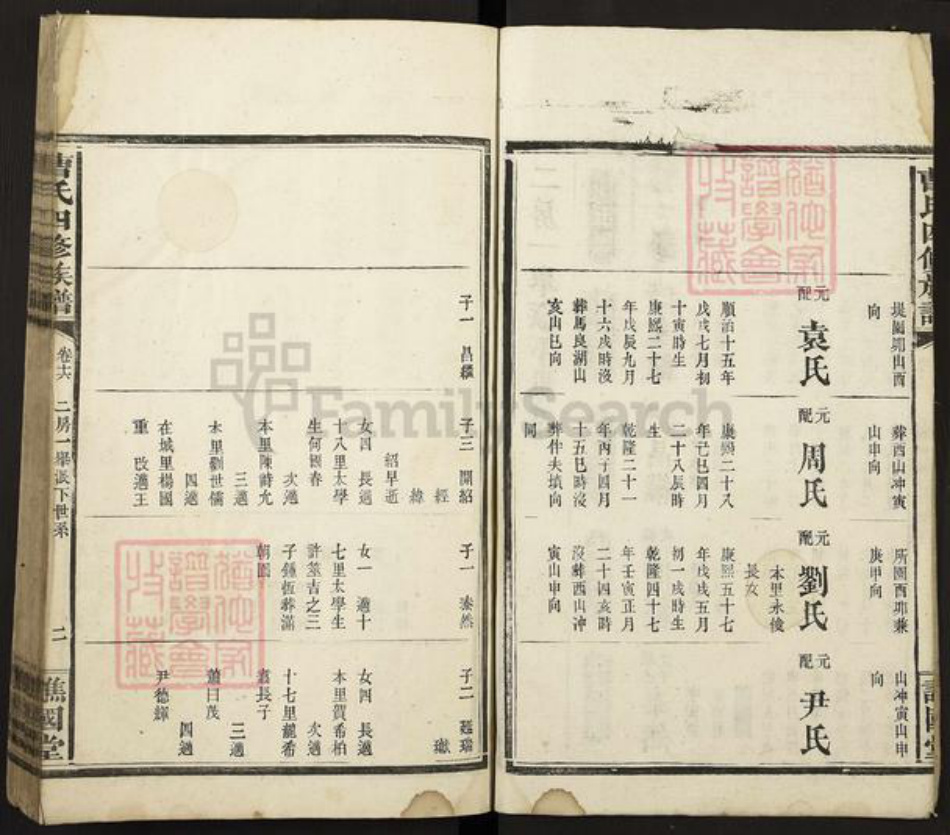 曹氏四修族譜
山酉
向
元配
袁氏
順治十五年
戊戌七月初
十寅時生
康熙二十七
年戊辰九月
十六戌時沒
葬馬良湖山
亥山巳向
葬酉山冲寅
山申向
元配
周氏
康熙二十八
年己巳四月
二十八辰時
生
乾隆二十一
年丙子四月
十五巳時沒
葬伴夫墳向
同
所園酉卯兼
庚甲向
元配
劉氏
本里永俊
長女
康熙五十七
年戊戌五月
初一戌時生
乾隆四十七
年壬寅正月
二十四亥時
沒葬酉山冲
寅山申向
山冲寅山申
向
元配
尹氏
子一
子三 開紹
經
緯
紹早逝
女四 長適
十八里太學
生何國春
次適
本里陳時允
三適
本里劉世儒
四適
在城里楊國
重 改適王
子一 泰然
女一 適十
七里太學生
許䇹吉之三
子鍾恆葬滿
朝園
子二 廷瑞
獻
女四 長適
本里賀希柏
次適
十七里龍希
袁長子
三適
蕭日茂
四適
尹德輝
曹氏四修族譜
卷十六
二房一舉派下世系
二
譙國堂
FamilySearch